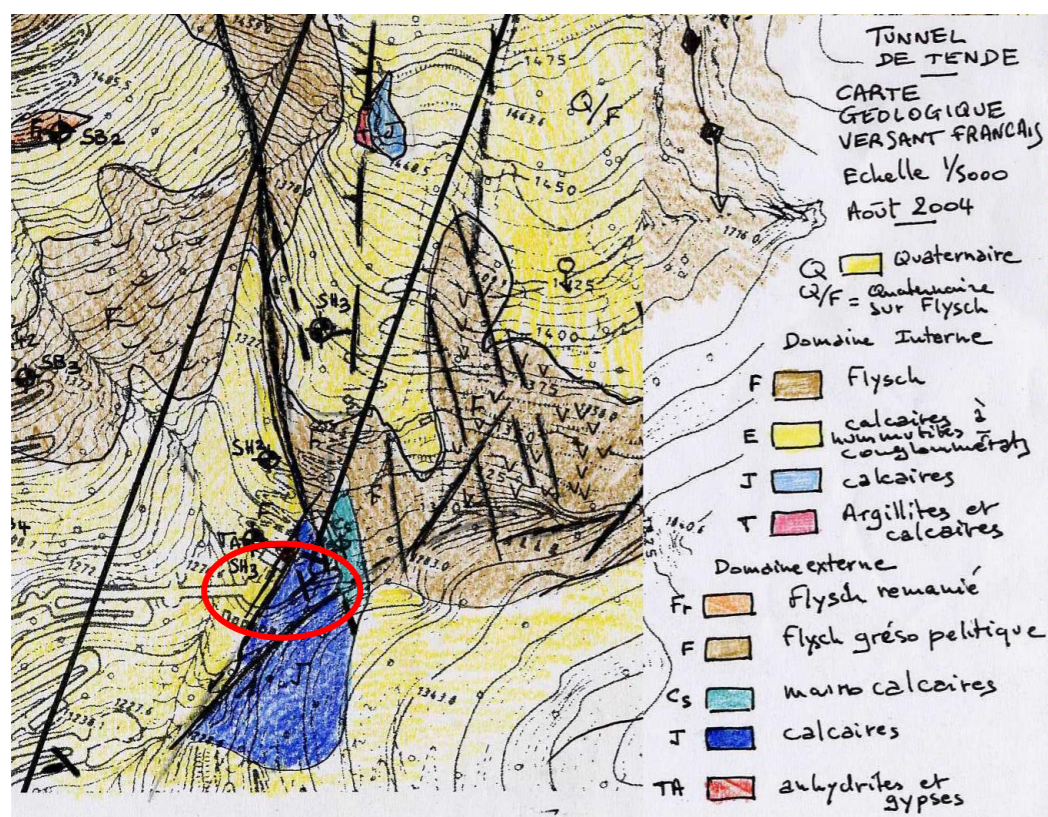 TUNNEL
DE TENDE
CARTE
GEOLOGIQUE
VERSANT FRANCAIS
Echelle 1/5000
Août 2004
Q Quaternaire
Q/F = Quaternaire
sur Flysch
Domaine Interne
F Flysch
E calcaires à
nummulites à
conglomérats
J calcaires
T Argillites et
calcaires
Domaine externe
Fr flysch remanié
F flysch gréso pelitique
Cs marno calcaires
J calcaires
TA anhydrites et
gypses
1485.5
SB2
1475
Q/F
1463.6
1450
1378.0
1425
1400
SH3
F
SB3
SH2
F
F
Cs
TA
SH3
1283.0
J
1263.8
1227.6
1238
1716.0
1840.6
J